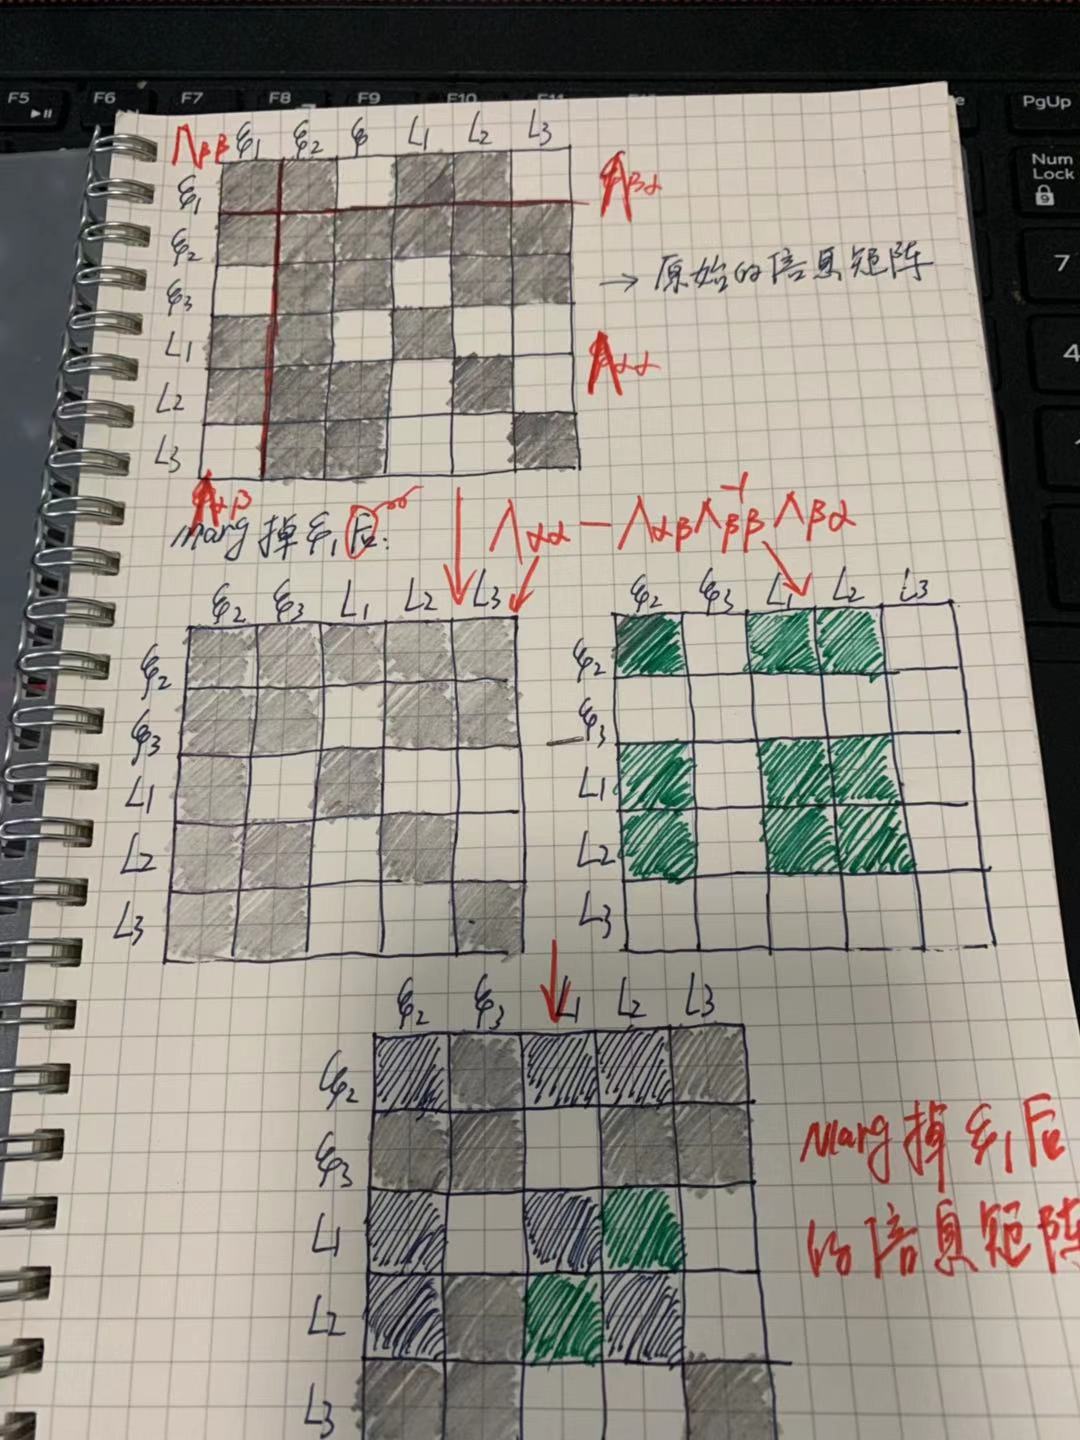 F5 F6 F7 F8 F9 F10 F11
PgUp
Num Lock
9
7
4
Λββ ξ1 ξ2 ξ L1 L2 L3
ξ1
Λβα
ξ2
→ 原始的信息矩阵
ξ3
L1
Λαα
L2
L3
Λαβ
marg 掉 ξ1 后:
Λαα - Λαβ Λββ⁻¹ Λβα
ξ2 ξ3 L1 L2 L3
ξ2
ξ3
L1
L2
L3
-
ξ2 ξ3 L1 L2 L3
ξ2
ξ3
L1
L2
L3
ξ2 ξ3 L1 L2 L3
ξ2
ξ3
L1
L2
L3
Marg 掉 ξ1 后
的信息矩阵